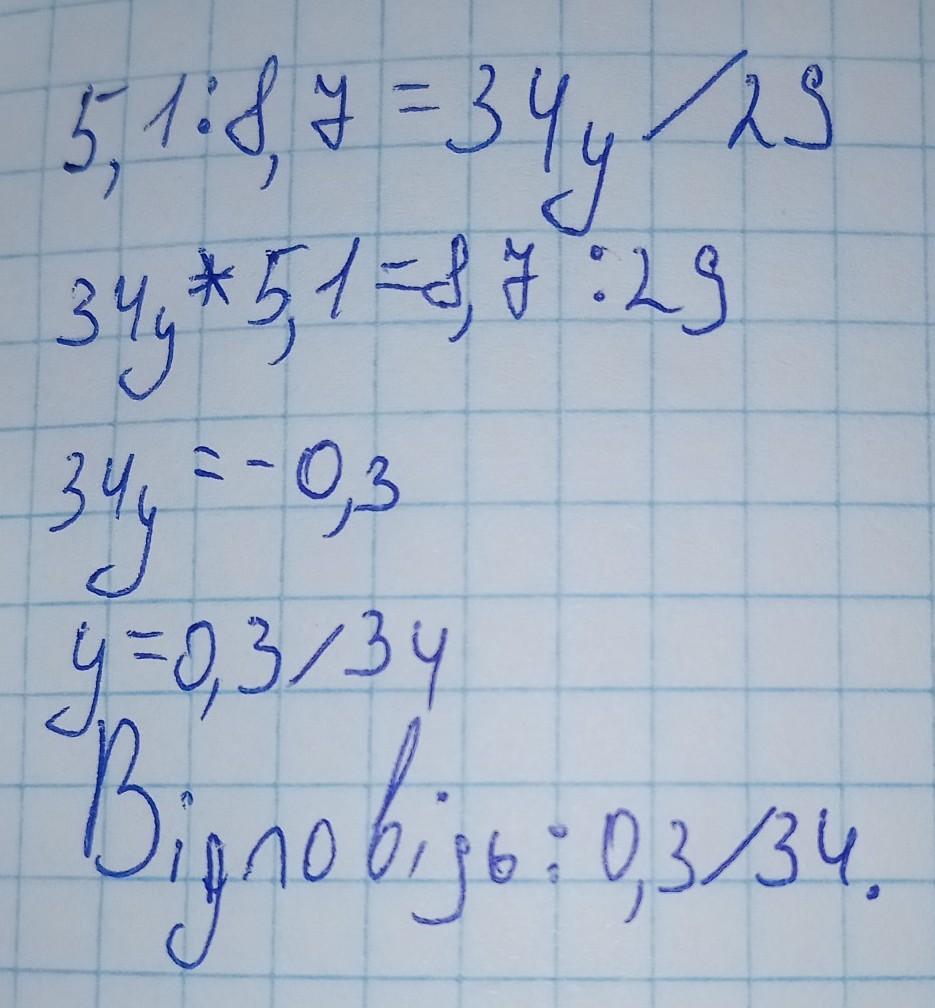 5,1:8,7=34y/29
34y*5,1=8,7:29
34y=-0,3
y=0,3/34
Відповідь: 0,3/34.